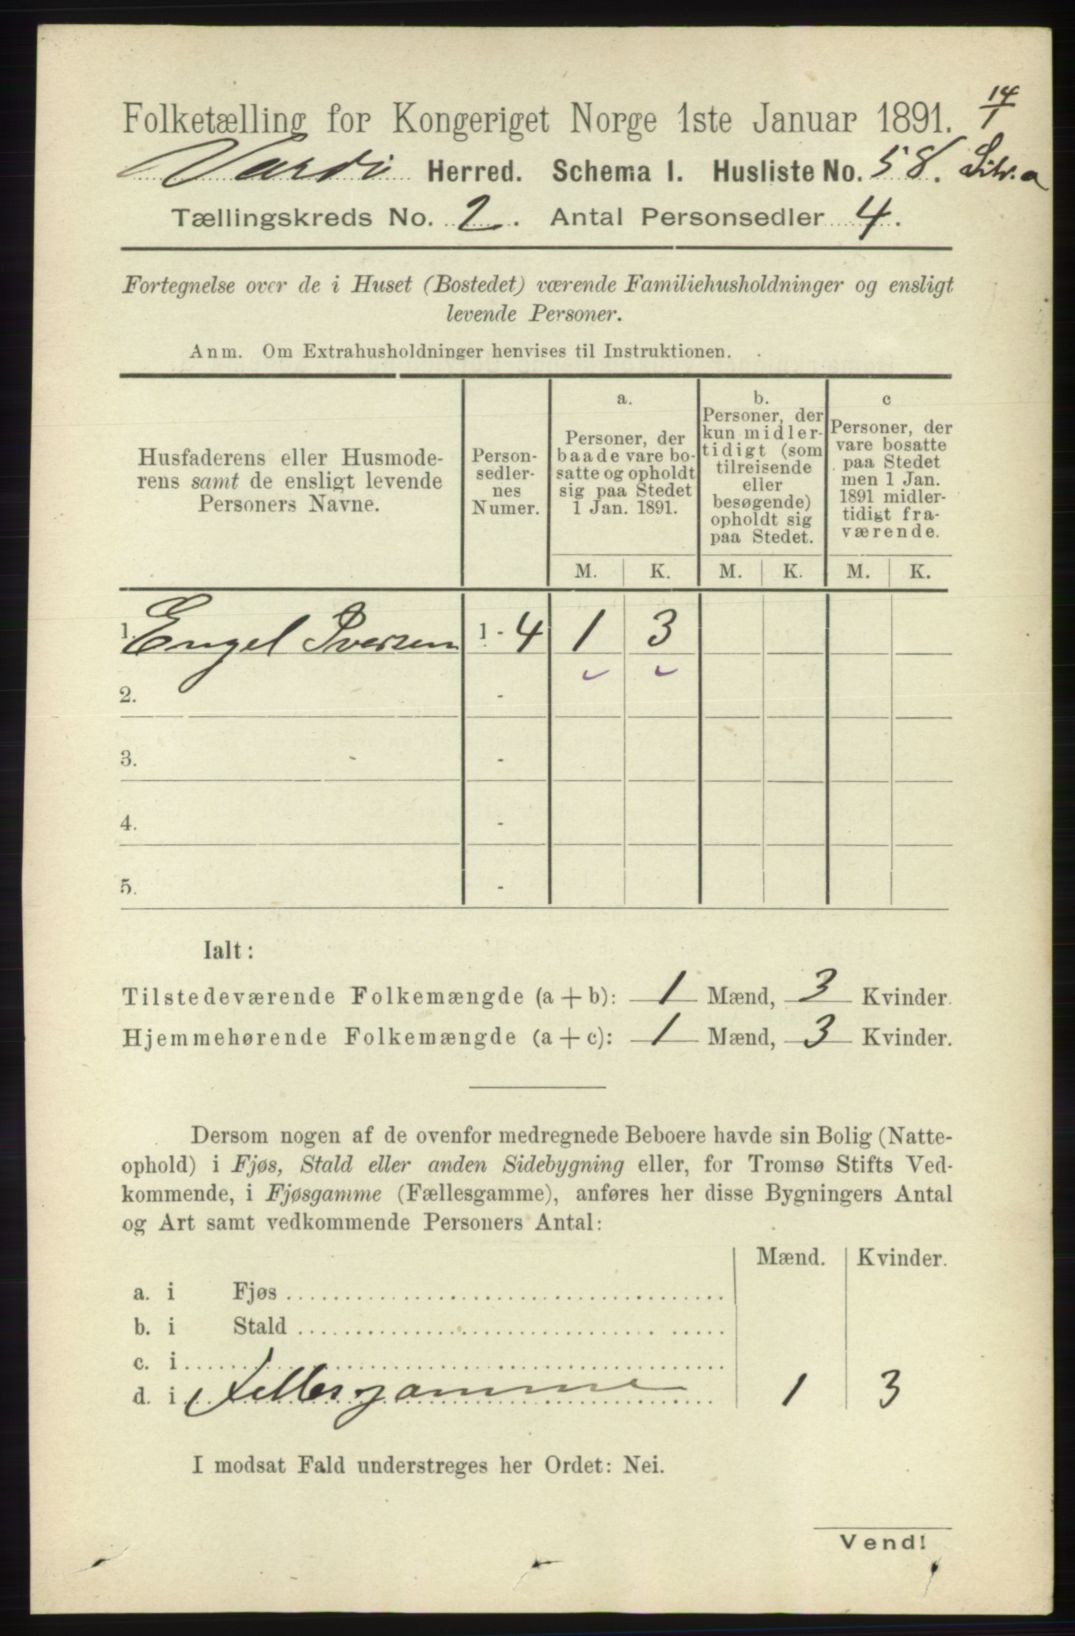 14/1
Folketælling for Kongeriget Norge 1ste Januar 1891.
Vardö Herred. Schema I. Husliste No. 58. Litr. a
Tællingskreds No. 2. Antal Personsedler 4.
Fortegnelse over de i Huset (Bostedet) værende Familiehusholdninger og ensligt
levende Personer.
Anm. Om Extrahusholdninger henvises til Instruktionen.
Husfaderens eller Husmode-
rens samt de ensligt levende
Personers Navne.
Person-
sedler-
nes
Numer.
a.
Personer, der
baade vare bo-
satte og opholdt
sig paa Stedet
1 Jan. 1891.
b.
Personer, der
kun midler-
tidigt (som
tilreisende
eller
besøgende)
opholdt sig
paa Stedet.
c
Personer, der
vare bosatte
paa Stedet
men 1 Jan.
1891 midler-
tidigt fra-
værende.
M. K. M. K. M. K.
1. Engel Iversen 1 - 4 1 3
2. -
3. -
4. -
5. -
Ialt:
Tilstedeværende Folkemængde (a + b): 1 Mænd, 3 Kvinder.
Hjemmehørende Folkemængde (a + c): 1 Mænd, 3 Kvinder.
Dersom nogen af de ovenfor medregnede Beboere havde sin Bolig (Natte-
ophold) i Fjøs, Stald eller anden Sidebygning eller, for Tromsø Stifts Ved-
kommende, i Fjøsgamme (Fællesgamme), anføres her disse Bygningers Antal
og Art samt vedkommende Personers Antal:
Mænd. Kvinder.
a. i Fjøs
b. i Stald
c. i
d. i Fellesgamme 1 3
I modsat Fald understreges her Ordet: Nei.
Vend!